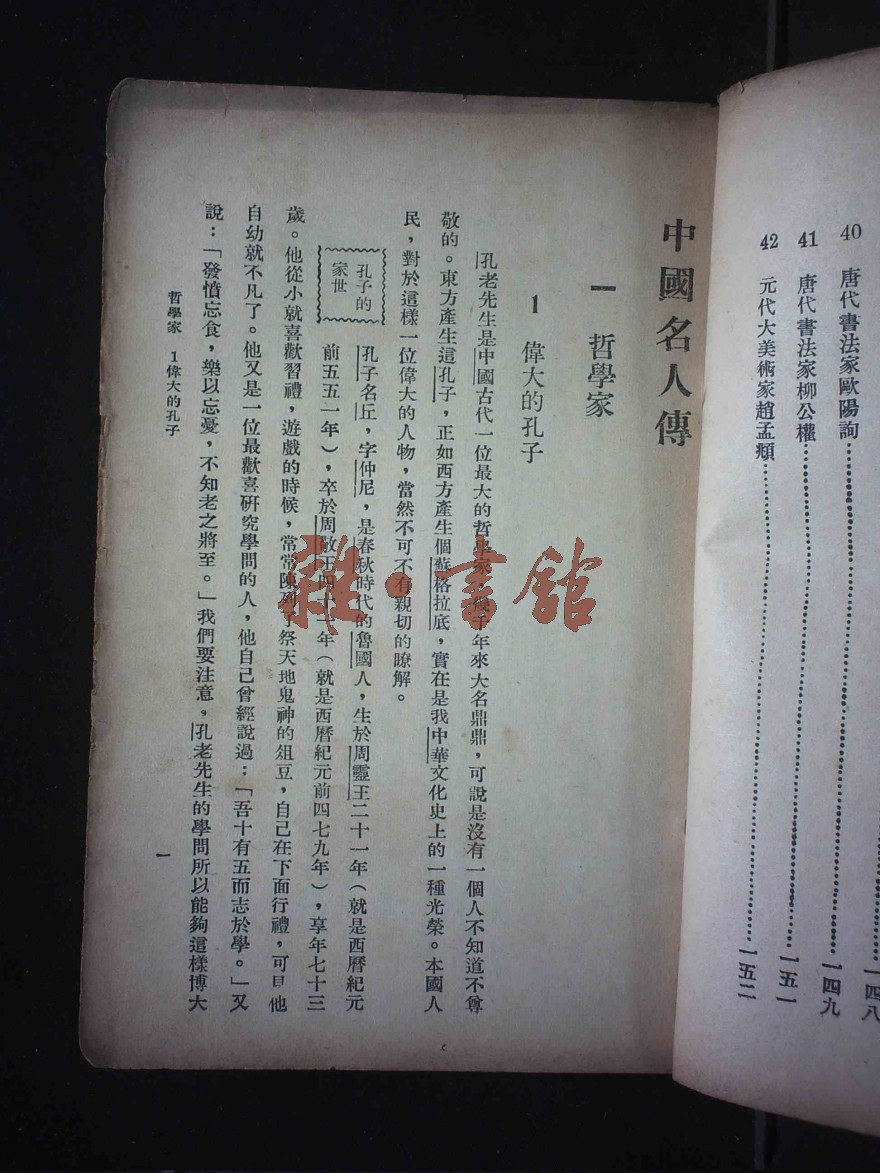 40 唐代書法家歐陽詢……一四八
41 唐代書法家柳公權……一四九
42 元代大美術家趙孟頫……一五一
中國名人傳
一 哲學家
1 偉大的孔子
孔老先生是中國古代一位最大的哲學家，幾千年來大名鼎鼎，可說是沒有一個人不知道不尊
敬的。東方產生這孔子，正如西方產生個蘇格拉底，實在是我中華文化史上的一種光榮。本國人
民，對於這樣一位偉大的人物，當然不可不有親切的瞭解。
孔子的
家世
孔子名丘，字仲尼，是春秋時代的魯國人，生於周靈王二十一年（就是西曆紀元
前五五一年），卒於周敬王四十一年（就是西曆紀元前四七九年），享年七十三
歲。他從小就喜歡習禮，遊戲的時候，常常陳列了祭天地鬼神的俎豆，自己在下面行禮，可見他
自幼就不凡了。他又是一位最歡喜研究學問的人，他自己曾經說過：「吾十有五而志於學。」又
說：「發憤忘食，樂以忘憂，不知老之將至。」我們要注意，孔老先生的學問所以能夠這樣博大
哲學家 1偉大的孔子
一
雜·書館